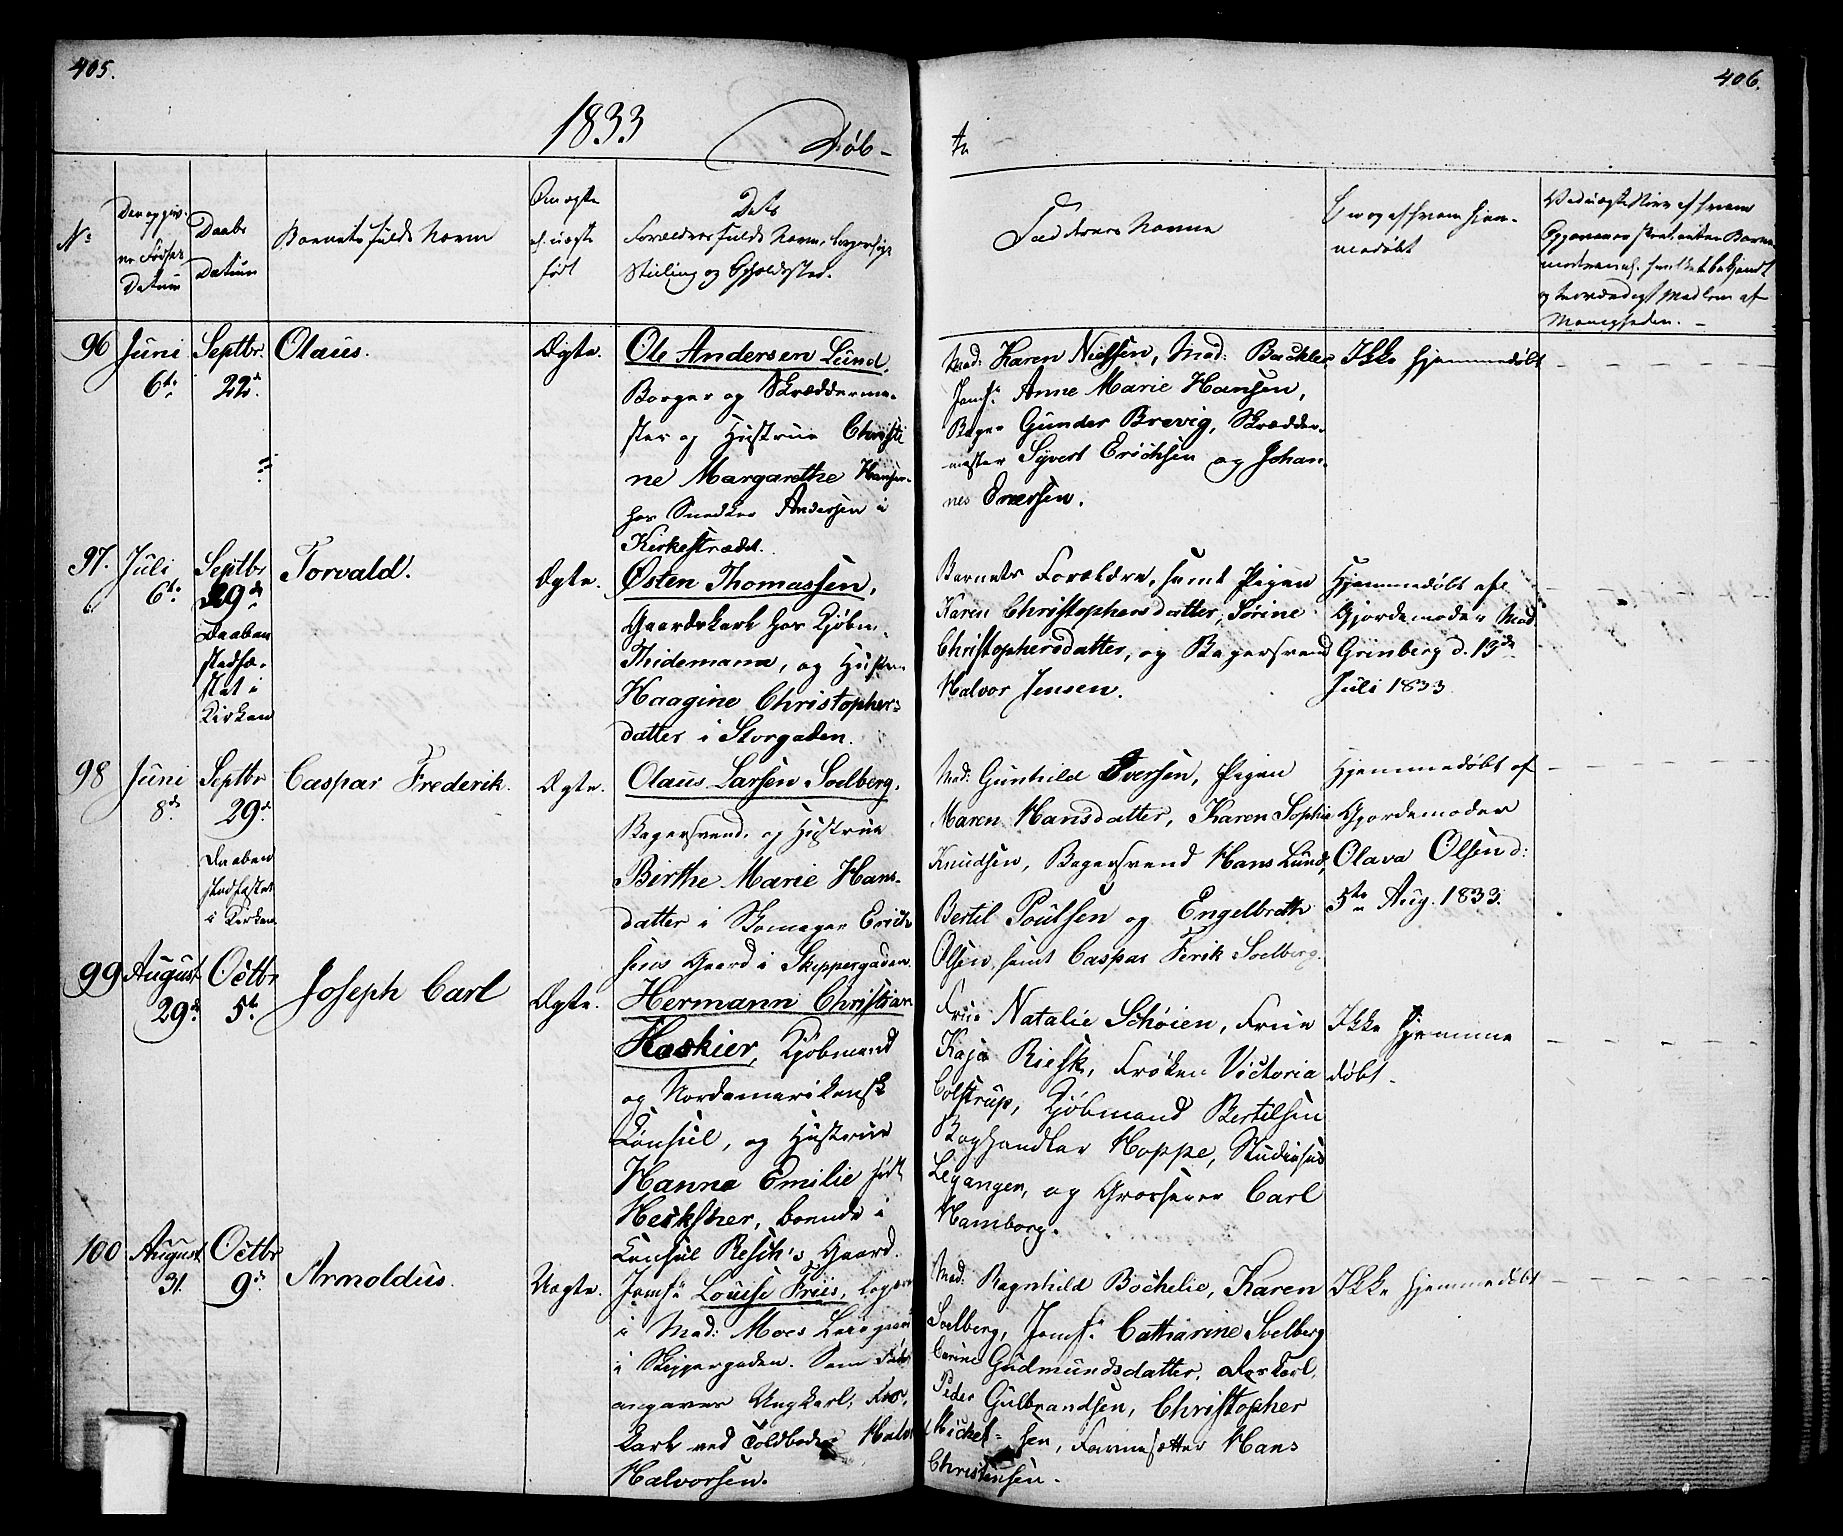 405.
1833
Døb-
No
Den opgiv-
ne Fødsels
Datum
Daabs
Datum
Barnets fulde Navn
Om ægte
el. uægte
født
Dets
Forældres fulde Navn, borgerlige
Stilling og Opholdssted.
96
Juni
6te
Septbr.
22de
Olaus.
Ægte.
Ole Andersen Lund,
Borger og Skrædderme-
ster og Hustrue Christi
ne Margarethe Hansen
hos Snedker Andersen i
Kirkestrædet.
97.
Juli
6te
Septbr
29de
Daaben
stadfæ-
stet i
Kirken
Torvald.
Ægte.
Østen Thomassen,
Gaardskarl hos Kjøbm.
Thidemann, og Hustru
Haagine Christopher-
datter i Storgaden.
98
Juni
8de
Septbr
29de
Daaben
stadfæstet
i Kirken
Caspar Frederik.
Ægte.
Olaus Larsen Soelberg,
Bagersvend, og Hustrue
Birthe Marie Hans-
datter i Skomager Erich
sens Gaard i Skippergaden.
99
August
29de
Octbr
5te
Joseph Carl
Ægte.
Hermann Christian
Hoskier, Kjøbmand
og Nordamerikansk
Consul, og Hustrue
Hanna Emilie født
Heckscher, boende i
Consul Resch's Gaard.
100
August
31.
Octbr
9de
Arnoldus.
Uægte.
Jomfr Louise Friis,
i Mad: Moes
i Skippergaden. Som Fader
angaves Ungkarl,
Karl ved Toldboden Halvor
Halvorsen.
406.
te
Faddernes Navne
Om og af hvem hjem-
medøbt
Ved uægte Børn af hvem
Opgaven er skeet, enten Barne-
moderen el. hvilket bekjendt
og troværdigt Medlem af
Menigheden. -
Mad: Karen Nielsen, Mad: Buckler
Jomfr Anne Marie Hansen,
Bager Gunder Brevig, Skrædder-
mester Syvert Erichsen og Johan-
nes Enersen.
Ikke hjemmedøbt
Barnets Forældre, samt Pigen
Karen Christophersdatter, Sørine
Christophersdatter, og Bagersvend
Halvor Jensen.
Hjemmedøbt af
Gjordemoder Mad
Grinberg d. 13de
Juli 1833
Mad: Gunhild Iversen, Pigen
Maren Hansdatter, Karen Sophie
Knudsen, Bagersvend Hans Lund,
Bertil Poulsen og Engelbrecht
Olsen, samt Caspar Ferik Soelberg.
Hjemmedøbt af
Gjordemoder
Olava Olsen d:
5te Aug. 1833.
Frue Natalie Schøien, Frue
Kaja Rieck, Frøken Victoria
Colstrup, Kjøbmand Bertelsen
Boghandler Hoppe, Studiosus
Leganger, og Grosserer Carl
Hamborg.
Ikke hjemme
døbt -
Mad: Ragnhild Bochelie, Karen
Soelberg, Jomfr Catharine Soelberg
Carine Gudmundsdatter,
Peder Gulbrandsen, Christopher
Michel-sen, Farvesætter Hans
Christensen.
Ikke hjemmedøbt